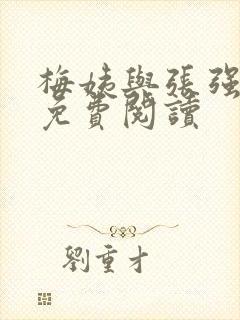 梅姨與張强
免費閱讀
劉重才